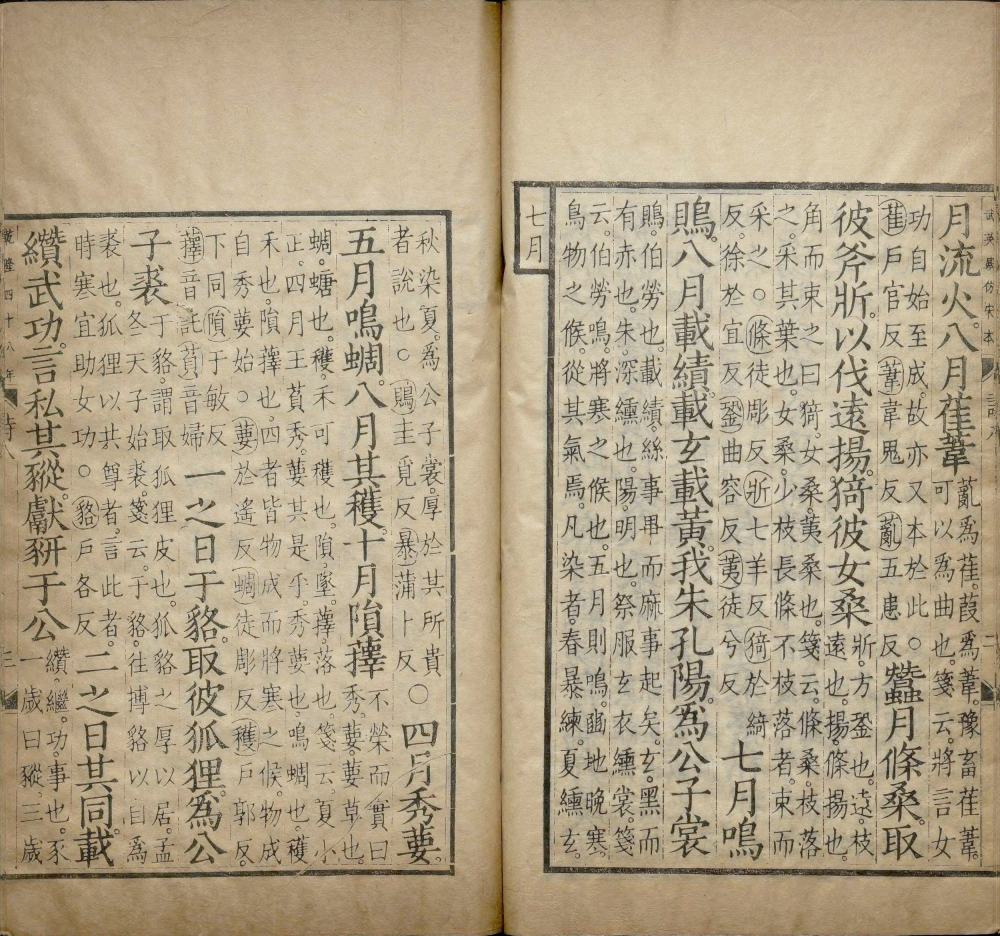 武英殿仿宋本
二
月流火。八月萑葦
薍為萑。葭為葦。豫畜萑葦。
可以為曲也。箋云。將言女
功自始至成。故亦又本於此。○
萑戶官反葦韋鬼反薍五患反
蠶月條桑。取
彼斧斨。以伐遠揚。猗彼女桑
斨。方銎也。遠。枝
遠也。揚。條揚也。
角而束之曰猗。女桑。荑桑也。箋云。條桑。枝落
之。采其葉也。女桑。少枝。長條不枝落者。束而
采之。○條徒彫反斨七羊反猗於綺
反。徐於宜反銎曲容反荑徒兮反
七月鳴
鵙。八月載績。載玄載黃。我朱孔陽。為公子裳
鵙。伯勞也。載績。絲事畢而麻事起矣。玄。黑而
有赤也。朱。深纁也。陽。明也。祭服玄衣纁裳。箋
云。伯勞鳴。將寒之候也。五月則鳴。豳地晚寒。
鳥物之候。從其氣焉。凡染者。春暴練。夏纁玄。
七月
秋染夏。為公子裳。厚於其所貴
者說也。○鵙圭覓反暴蒲卜反
○四月秀葽。
五月鳴蜩。八月其穫。十月隕蘀
不榮而實曰
秀。葽。葽草也。
蜩。螗也。穫。禾可穫也。隕。墜。蘀。落也。箋云。夏小
正。四月王萯秀。葽其是乎。秀葽也。鳴蜩也。穫
禾也。隕蘀也。四者皆物成而將寒之候。物成
自秀葽始。○葽於遙反蜩徒彫反穫戶郭反。
下同隕于敏反
蘀音託萯音婦
一之日于貉。取彼狐狸。為公
子裘
于貉。謂取狐狸皮也。狐貉之厚以居。孟
冬天子始裘。箋云。于貉。往搏貉以自為
裘也。狐狸以共尊者。言此者。
時寒宜助女功。○貉戶各反
二之日其同。載
纘武功。言私其豵。獻豜于公
纘。繼。功。事也。豕
一歲曰豵。三歲
乾隆四十八年
詩八
三